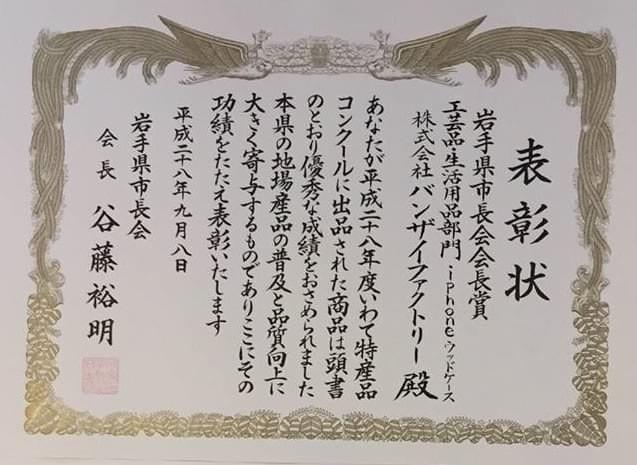 表彰状
岩手県市長会会長賞
工芸品・生活用品部門・iphoneウッドケース
株式会社バンザイファクトリー殿
あなたが平成二十八年度いわて特産品
コンクールに出品された商品は頭書
のとおり優秀な成績をおさめられました
本県の地場産品の普及と品質向上に
大きく寄与するものでありここにその
功績をたたえ表彰いたします
平成二十八年九月八日
岩手県市長会
会長 谷藤裕明